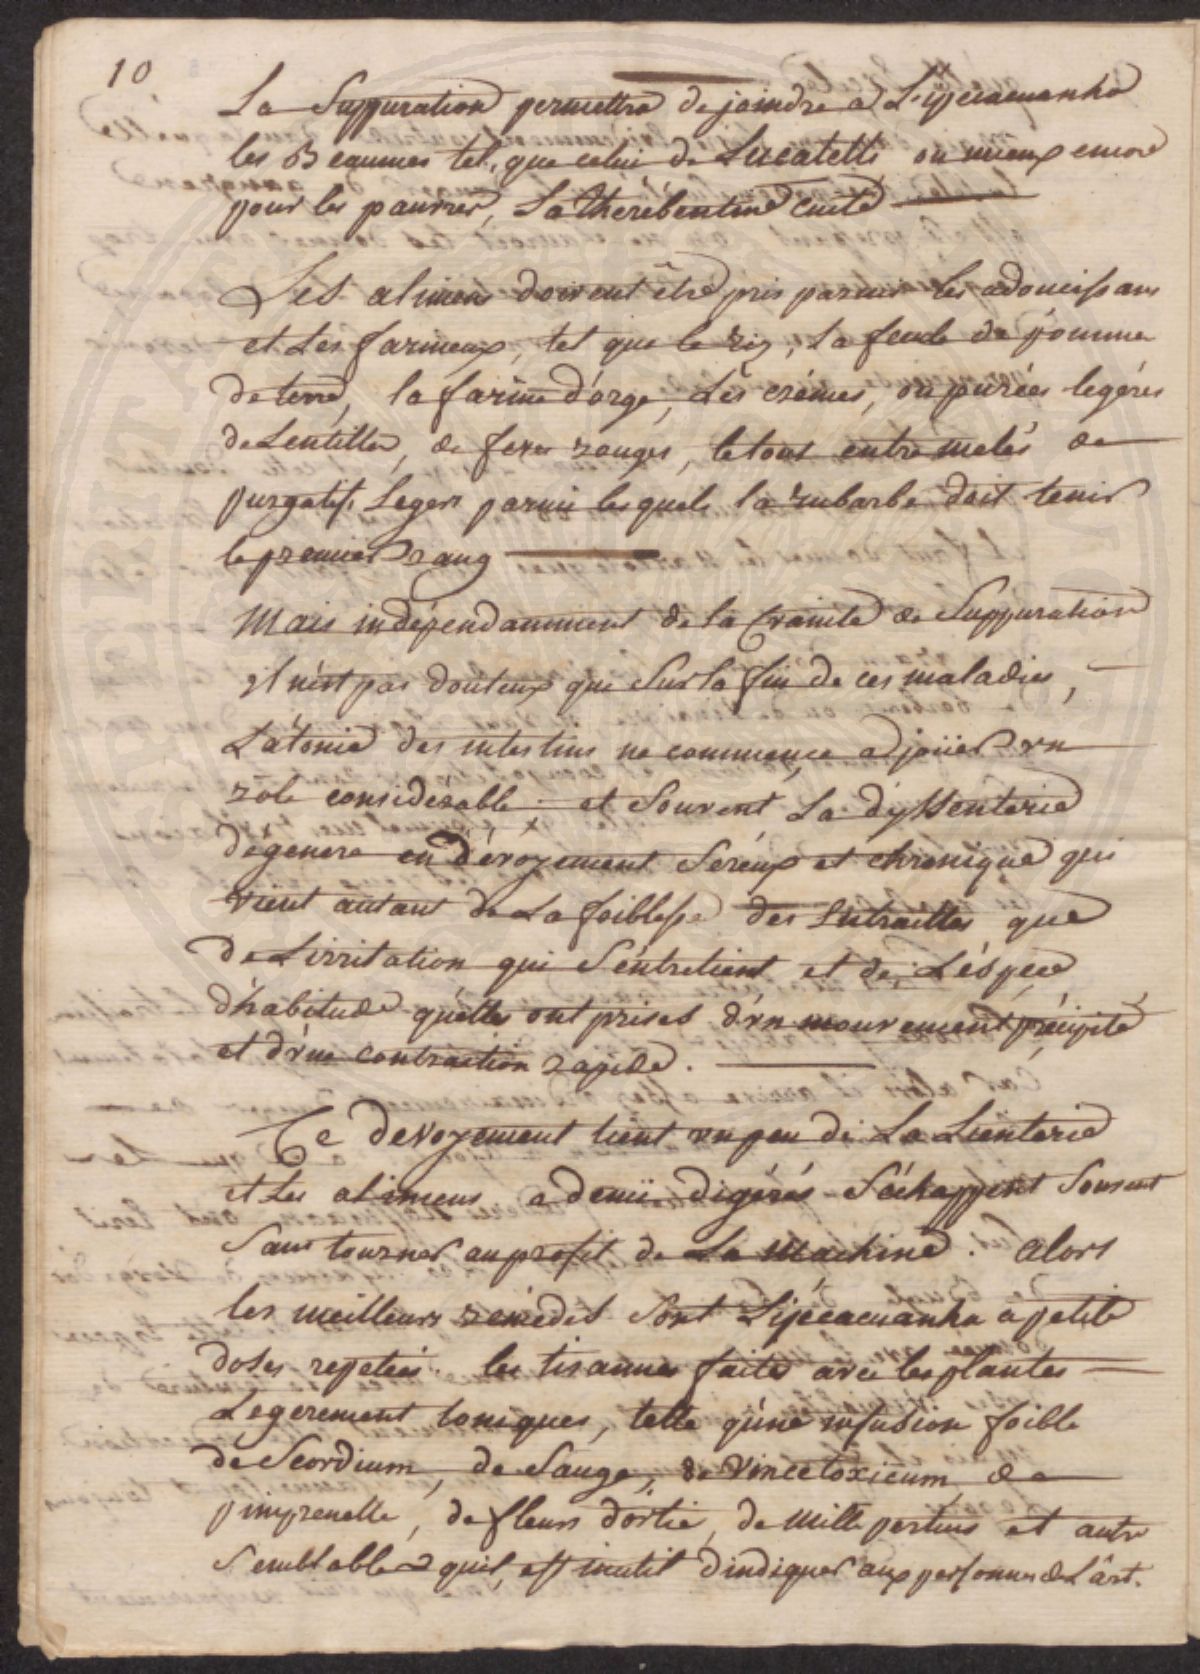 10
La Suppuration permettra de joindre a L'ipecacuanha
les Beaumes tel, que celui de Lucatelli ou mieux encore
pour les pauvres, La Therébentine cuite
Les alimens doivent être pris parmi les adoucissans
et Les farineux, tel que le riz, la fecule de pomme
de terre, la farine d'orge, Les crémes, ou purées legéres
de Lentilles, de feves rouges, le tout entre melés de
purgatifs Legers parmi lesquels la rubarbe doit tenir
le premier rang
Mais indépendamment de la crainte de Suppuration
il n'est pas douteux que Sur la fin de ces maladies,
L'atonie des intestins ne commence a joüer un
role considérable et Souvent La dyssenterie
degenere en dévoyement Séreux et chronique qui
vient autant de La foiblesse des Entrailles que
de L'irritation qui S'entretient et de L'éspece
d'habitude quélles ont prises d'un mouvement précipité
et d'une contraction rapide.
Ce devoyement tient un peu de La Lienterie
et Les alimens a demi digérés S'échappent Souvent
Sans tourner au profit de La Machine. Alors
les meilleurs remédes Sont L'ipécacuanha a petite
doses repetées les tisannes faites avec les plantes
Legerement toniques, telle qu'une infusion foible
de Scordium, de Sauge, de Vincetoxicum, de
pimprenelle, de fleurs d'ortie, de Mille pertuis et autre
Semblables quil est inutil d'indiquer aux personnes de L'art.